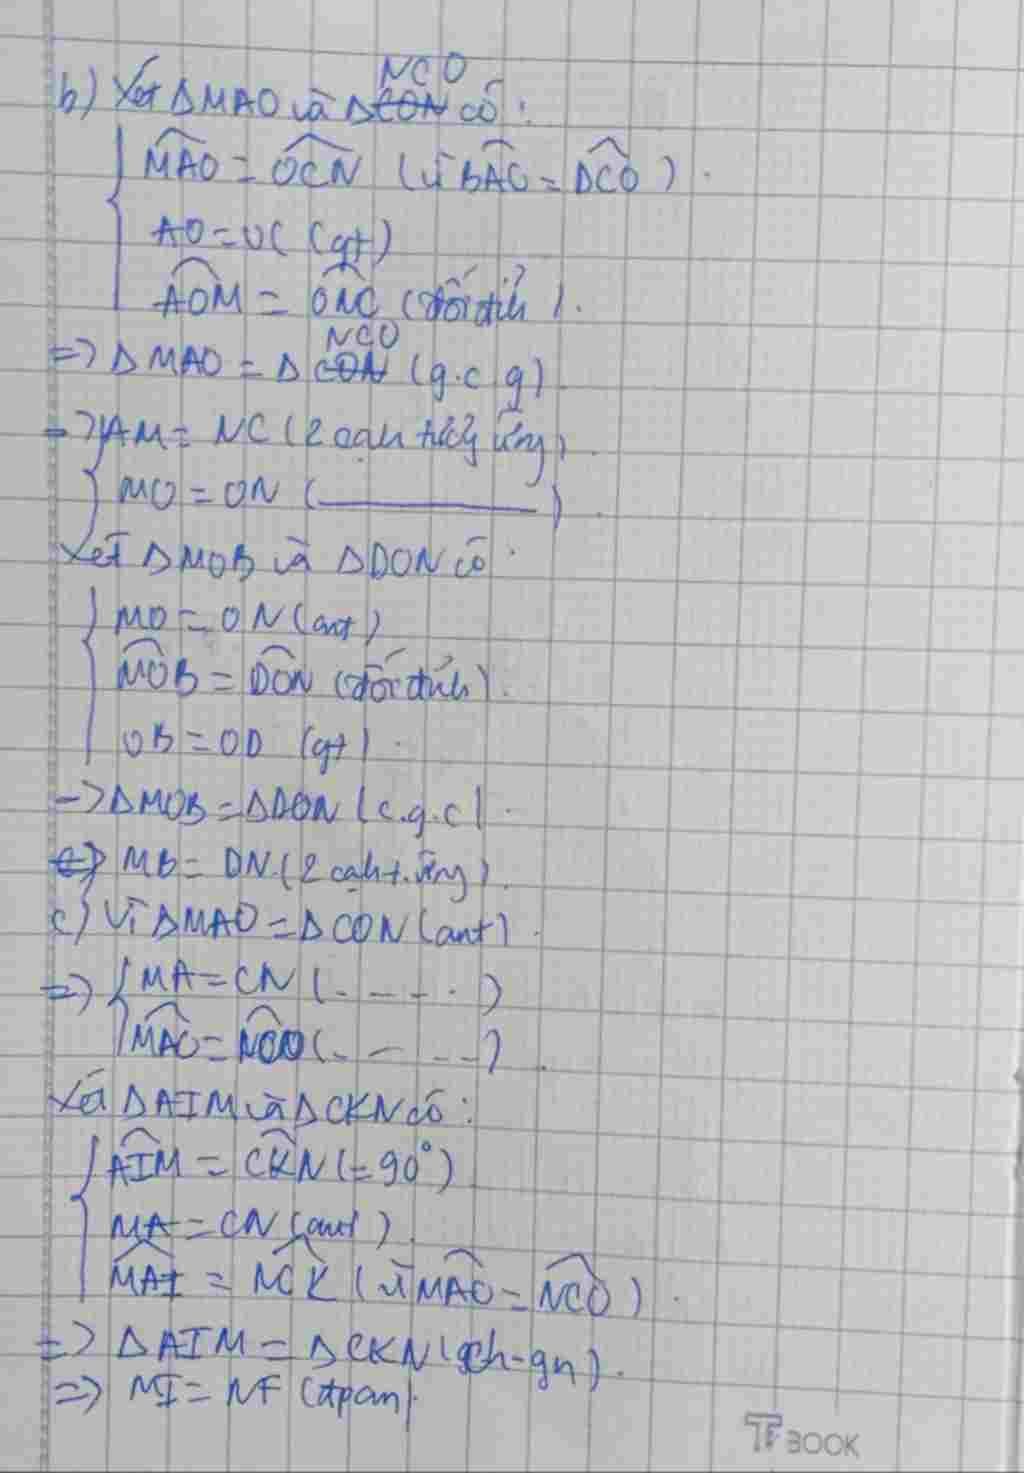 NCO
b) Xét ΔMAO và ΔCON có:
MAO = OCN (vì BAC = DCO).
AO = OC (gt)
AOM = ONC (đối đỉnh).
NCO
=> ΔMAO = ΔCON (g.c.g)
=> AM = NC (2 cạnh tương ứng).
MO = ON (_______).
Xét ΔMOB và ΔDON có:
MO = ON (cmt)
MOB = DON (đối đỉnh).
OB = OD (gt).
-> ΔMOB = ΔDON (c.g.c).
=> MB = DN. (2 cạnh t. ứng).
c) Vì ΔMAO = ΔCON (cmt).
=> MA = CN (- - - -)
MAO = NCO (- - - -).
Xét ΔAIM và ΔCKN có:
AIM = CKN (= 90°)
MA = CN (cmt).
MAI = NCK (vì MAO = NCO).
=> ΔAIM = ΔCKN (ch-gn).
=> MI = NF (đpcm).
BOOK